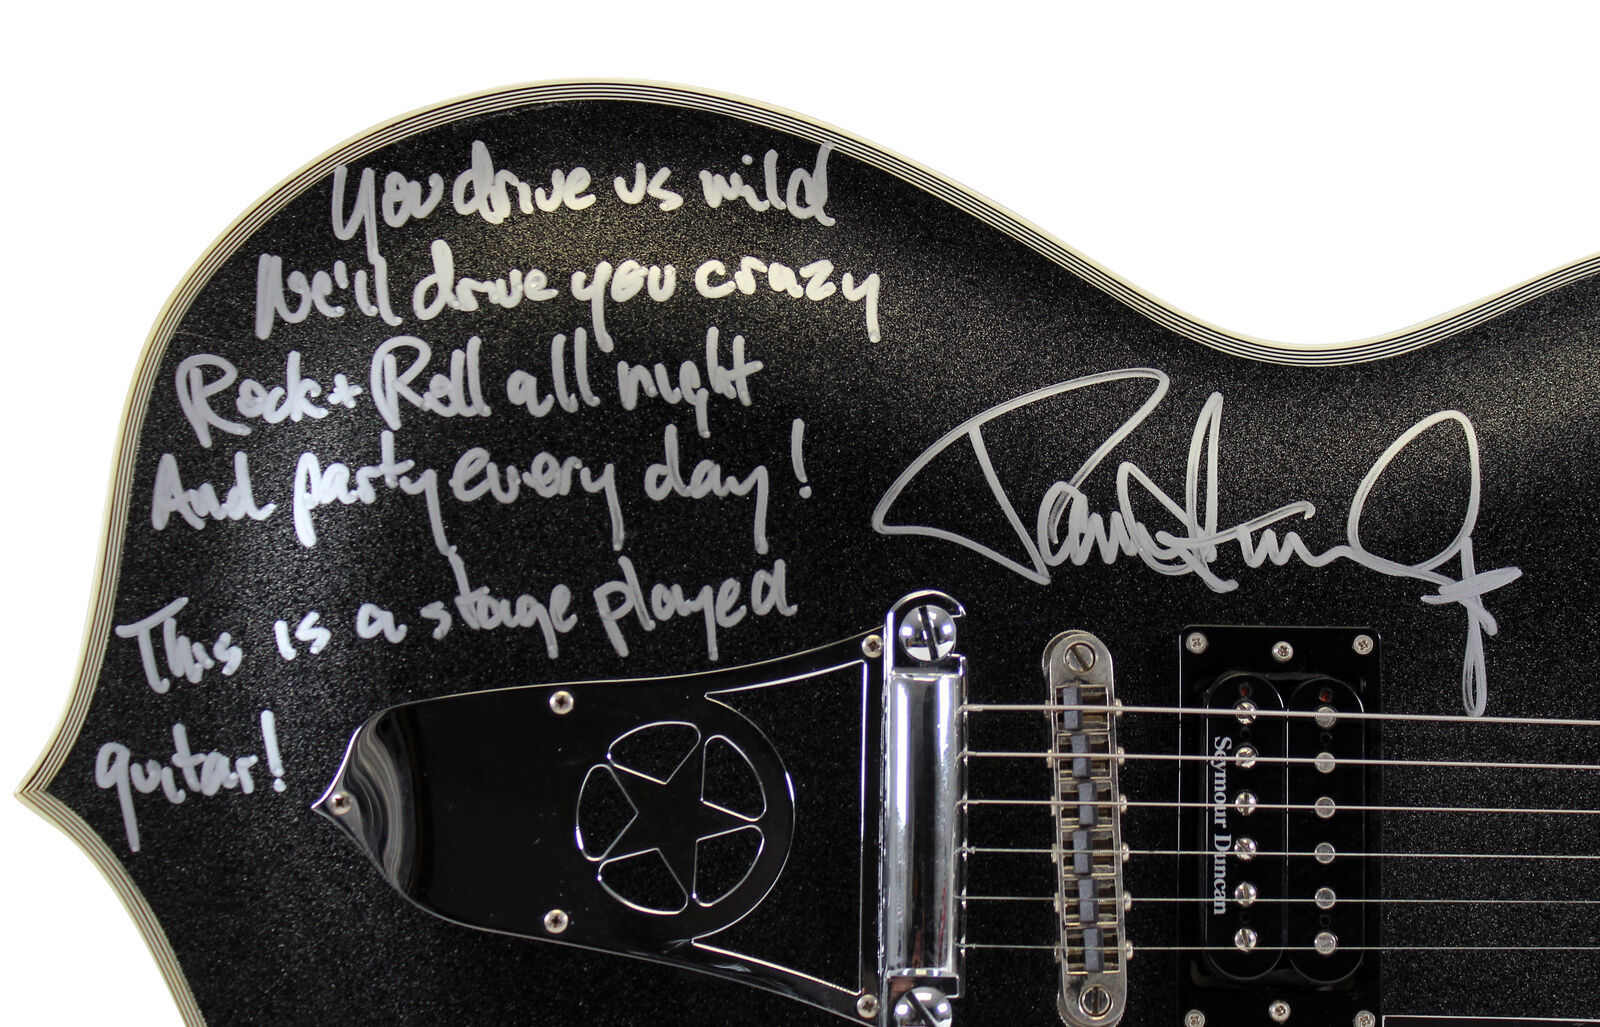 You drive us wild
We'll drive you crazy
Rock + Roll all night
And party every day!
This is a stage played
guitar!
Paul Stanley
Seymour Duncan